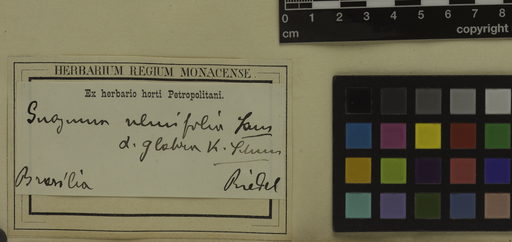 0 1 2 3 4 5 6 7 8
cm
copyright
HERBARIUM REGIUM MONACENSE.
Ex herbario horti Petropolitani.
Guazuma ulmifolia Lam
α. glabra K. Schum
Brasilia Riedel